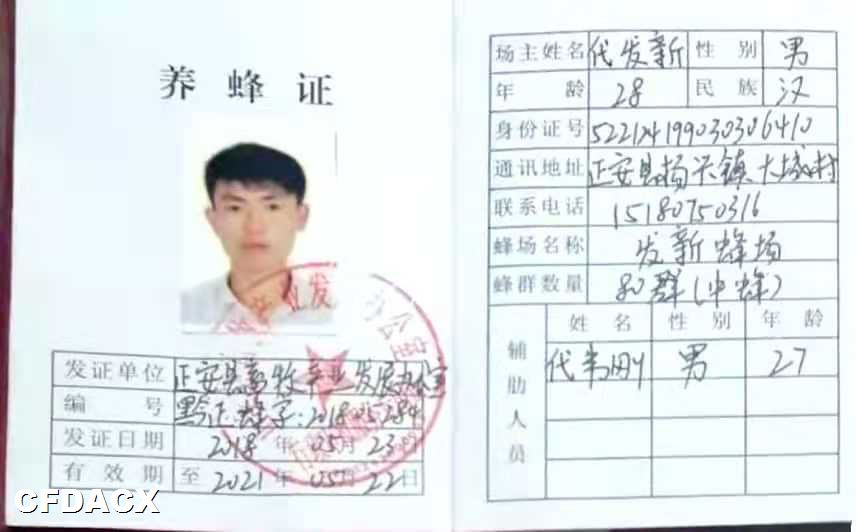 养蜂证
发证单位 正安县畜牧产业发展办公室
编号 黔正蜂字:201805284
发证日期 2018年05月23日
有效期 至2021年05月22日
CFDACX
场主姓名 代发新 性别 男
年龄 28 民族 汉
身份证号
通讯地址 正安县杨兴镇大城村
联系电话 15180750316
蜂场名称 发新蜂场
蜂群数量 80群(中蜂)
辅助人员
姓名 性别 年龄
男 27